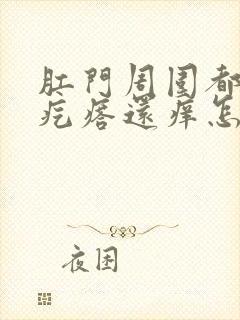 肛門周囤都
疙瘩還痒怎
夜困